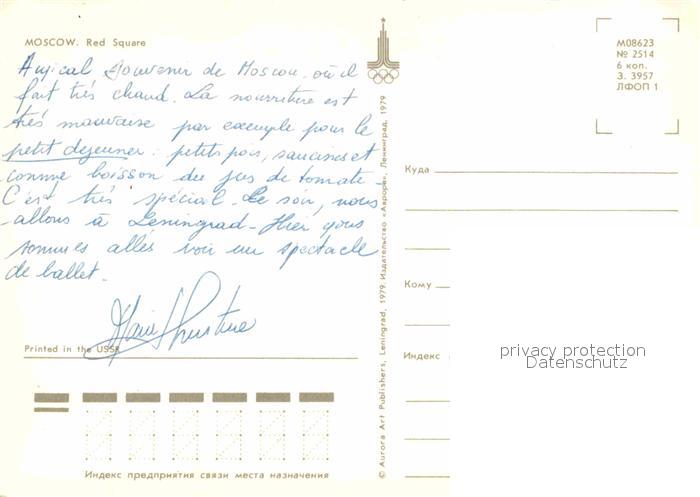 MOSCOW. Red Square
Amical Souvenir de Moscou. où il
fait très chaud. La nourriture est
très mauvaise par exemple pour le
petit dejeuner : petits pois, saucisses et
comme boisson du jus de tomate.
C'est très spécial. Ce soir, nous
allons à Leningrad - Hier nous
sommes allés voir un spectacle
de ballet.
Printed in the USSR
Индекс предприятия связи места назначения
© Aurora Art Publishers, Leningrad, 1979. Издательство «Аврора», Ленинград, 1979
М08623
№ 2514
6 коп.
З. 3957
ЛФОП 1
Куда
Кому
Индекс
privacy protection
Datenschutz